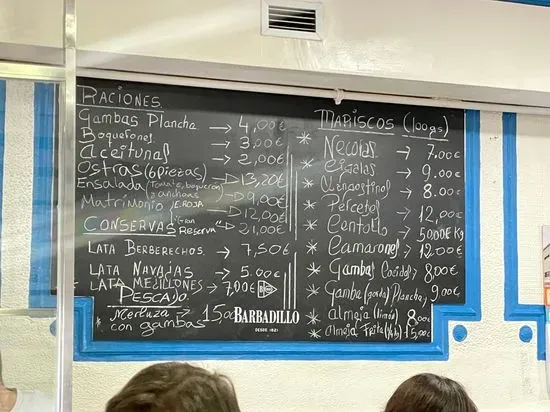 RACIONES
Gambas Plancha → 4,00€
Boquerones → 3,00€
Aceitunas → 2,00€
Ostras (6 piezas) → 13,20€
Ensalada (Tomate, boquerón y anchoas) → 9,00€
Matrimonio E. ROJA → 12,00€
"Gran Reserva" → 21,00€
CONSERVAS
LATA BERBERECHOS → 7,50€
LATA NAVAJAS → 5.00€
LATA MEJILLONES → 7,00€
PESCADO
Merluza con gambas → 15,00
BARBADILLO
DESDE 1821
MARISCOS (100grs)
* Necolas → 7,00€
* Cigalas → 9.00€
* Langostinos → 8.00€
* Percebes → 12,00€
* Centollo → 50,00€ Kg
* Camarones → 12,00€
* Gambas Cocidas → 8,00€
* Gamba (gorda) Plancha → 9,00€
* Almeja (limón) 8,00€
* Almeja Frita 15,00€